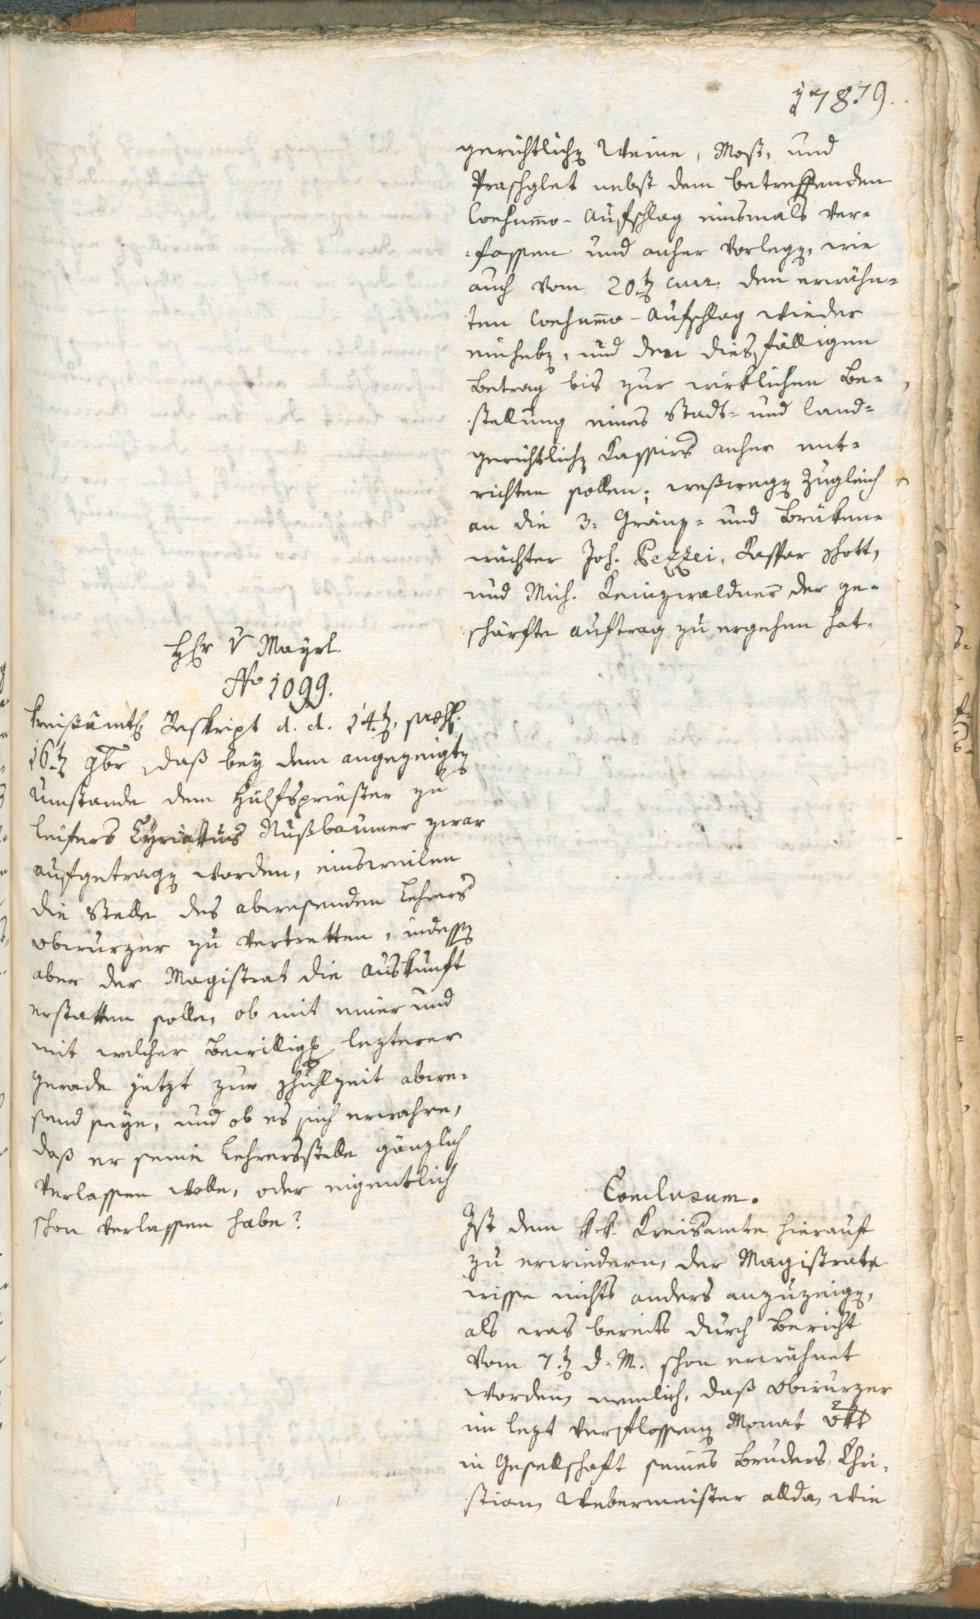 1787 9.
gerichtlichen Weine, Most, und
Praschglet nebst dem betreffenden
Consummo-Aufschlag einsmals ver-
fassen und anher vorlegen, wie
auch vom 20.ten curr. den erwähn-
ten Consummo-Aufschlag wieder
einheben, und den diesfälligen
Betrag bis zur wirklichen Be-
stellung eines Stadt- und Land-
gerichtlichen Kassiers anher ent-
richten sollen; weßwegen zugleich
an die 3: Gränz- und Brüken-
wächter Joh. Pezzei, Kaspar Schott,
und Mich. Kinzwaldner der ge-
schärfte Auftrag zu ergehen hat.
Hr v Mayrl.
No 1099.
Kreisämtl. Reskript d. d. 14.ten, praes.
16.ten 9br, daß bey dem angezeigten
Umstande dem Hülfspriester zu
Leifers Cyriakus Nußbaumer zwar
aufgetragen worden, einsweilen
die Stelle des abwesenden Lehrers
Obwurzer zu vertretten, indessen
aber der Magistrat die Auskunft
erstatten solle, ob mit einer und
mit welcher Bewilligung lezterer
gerade jetzt zur Schulzeit abwe-
send seye, und ob es sich erwahre,
daß er seine Lehrersstelle gänzlich
verlassen wolle, oder eigentlich
schon verlassen habe?
Conclusum.
Ist dem k.k. Kreisamte hierauf
zu erwiedern, der Magistrat
wisse nichts anders anzuzeigen,
als was bereits durch Bericht
vom 7.ten d. M. schon erwähnet
worden, nemlich, daß Obwurzer
im lezt verflossenen Monat Okt
in Gesellschaft seines Bruders Chri-
stian, Webermeister allda, wie